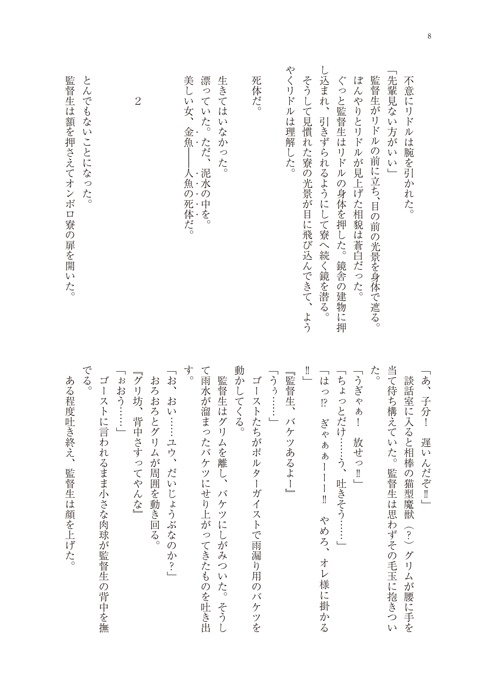 8
不意にリドルは腕を引かれた。
「先輩見ない方がいい」
監督生がリドルの前に立ち、目の前の光景を身体で遮る。
ぼんやりとリドルが見上げた相貌は蒼白だった。
ぐっと監督生はリドルの身体を押した。鏡舎の建物に押
し込まれ、引きずられるようにして寮へ続く鏡を潜る。
そうして見慣れた寮の光景が目に飛び込んできて、よう
やくリドルは理解した。
死体だ。
生きてはいなかった。
漂っていた。ただ、泥水の中を。
美しい女、金魚――人魚の死体だ。
2
とんでもないことになった。
監督生は額を押さえてオンボロ寮の扉を開いた。
「あ、子分！　遅いんだぞ‼」
談話室に入ると相棒の猫型魔獣（？）グリムが腰に手を
当て待ち構えていた。監督生は思わずその毛玉に抱きつい
た。
「うぎゃぁ！　放せっ‼」
「ちょっとだけ……う、吐きそう……」
「はっ⁉　ぎゃぁぁーーー‼　やめろ、オレ様に掛かる
‼」
『監督生、バケツあるよー』
「うぅ……」
ゴーストたちがポルターガイストで雨漏り用のバケツを
動かしてくる。
監督生はグリムを離し、バケツにしがみついた。そうし
て雨水が溜まったバケツにせり上がってきたものを吐き出
す。
「お、おい……ユウ、だいじょうぶなのか？」
おろおろとグリムが周囲を動き回る。
『グリ坊、背中さすってやんな』
「ぉおう……」
ゴーストに言われるまま小さな肉球が監督生の背中を撫
でる。
ある程度吐き終え、監督生は顔を上げた。